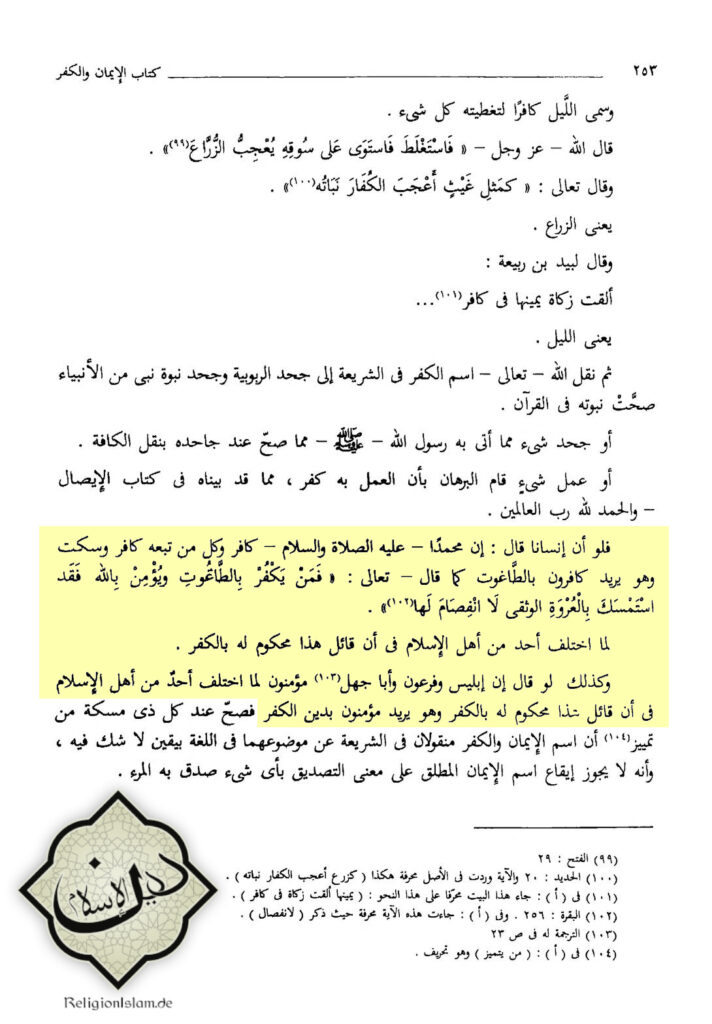 ٢٥٣ كتاب الإيمان والكفر
وسمى اللَّيل كافرًا لتغطيته كل شىء .
قال الله – عز وجل – « فَاسْتَغْلَظَ فَاستَوَى عَلى سُوقِهِ يُعْجِبُّ الزُّرَّاعَ(٩٩)» .
وقال تعالى : « كمَثلِ غَيْثٍ أَعْجَبَ الكُفَارَ نَبَاتُه(١٠٠)» .
يعنى الزراع .
وقال لبيد بن ربيعة :
ألقت زكاة يمينها فى كافر(١٠١)...
يعنى الليل .
ثم نقل الله – تعالى – اسم الكفر فى الشريعة إلى جحد الربوبية وجحد نبوة نبى من الأنبياء
صحَّتْ نبوته فى القرآن .
أو جحد شىء مما أتى به رسول الله – ﷺ – مما صحّ عند جاحده بنقل الكافة .
أو عمل شىءٍ قام البرهان بأن العمل به كفر ، مما قد بيناه فى كتاب الإيصال
– والحمد لله رب العالمين .
فلو أن إنسانا قال : إن محمدًا – عليه الصلاة والسلام – كافر وكل من تبعه كافر وسكت
وهو يريد كافرون بالطَّاغوت كما قال – تعالى : « فَمَنْ يَكْفُرْ بِالطَّاغُوتِ ويُؤْمِنْ بِالله فَقَد
اسْتَمْسَكَ بِالْعُرْوَةِ الوثقى لَا انْفِصَامَ لَها(١٠٢)» .
لما اختلف أحد من أهل الإسلام فى أن قائل هذا محكوم له بالكفر .
وكذلك لو قال إن إبليس وفرعون وأبا جهل(١٠٣) مؤمنون لما اختلف أحدٌ من أهل الإسلام
فى أن قائل هذا محكوم له بالكفر وهو يريد مؤمنون بدين الكفر فصحّ عند كل ذى مسكة من
تمييز(١٠٤) أن اسم الإيمان والكفر منقولان فى الشريعة عن موضوعهما فى اللغة بيقين لا شك فيه ،
وأنه لا يجوز إيقاع اسم الإيمان المطلق على معنى التصديق بأى شىء صدق به المرء .
(٩٩) الفتح : ٢٩
(١٠٠) الحديد : ٢٠ والآية وردت فى الأصل محرفة هكذا ( كزرع أعجب الكفار نباته ) .
(١٠١) فى ( أ ) : جاء هذا البيت محرفًا على هذا النحو : ( يمينها ألقت زكاة فى كافر ) .
(١٠٢) البقرة : ٢٥٦ . وفى ( أ ) : جاءت هذه الآية محرفة حيث ذكر ( لانفصال ) .
(١٠٣) الترجمة له فى ص ٢٣
(١٠٤) فى ( أ ) : ( من يتميز ) وهو تحريف .
دين الإسلام
ReligionIslam.de